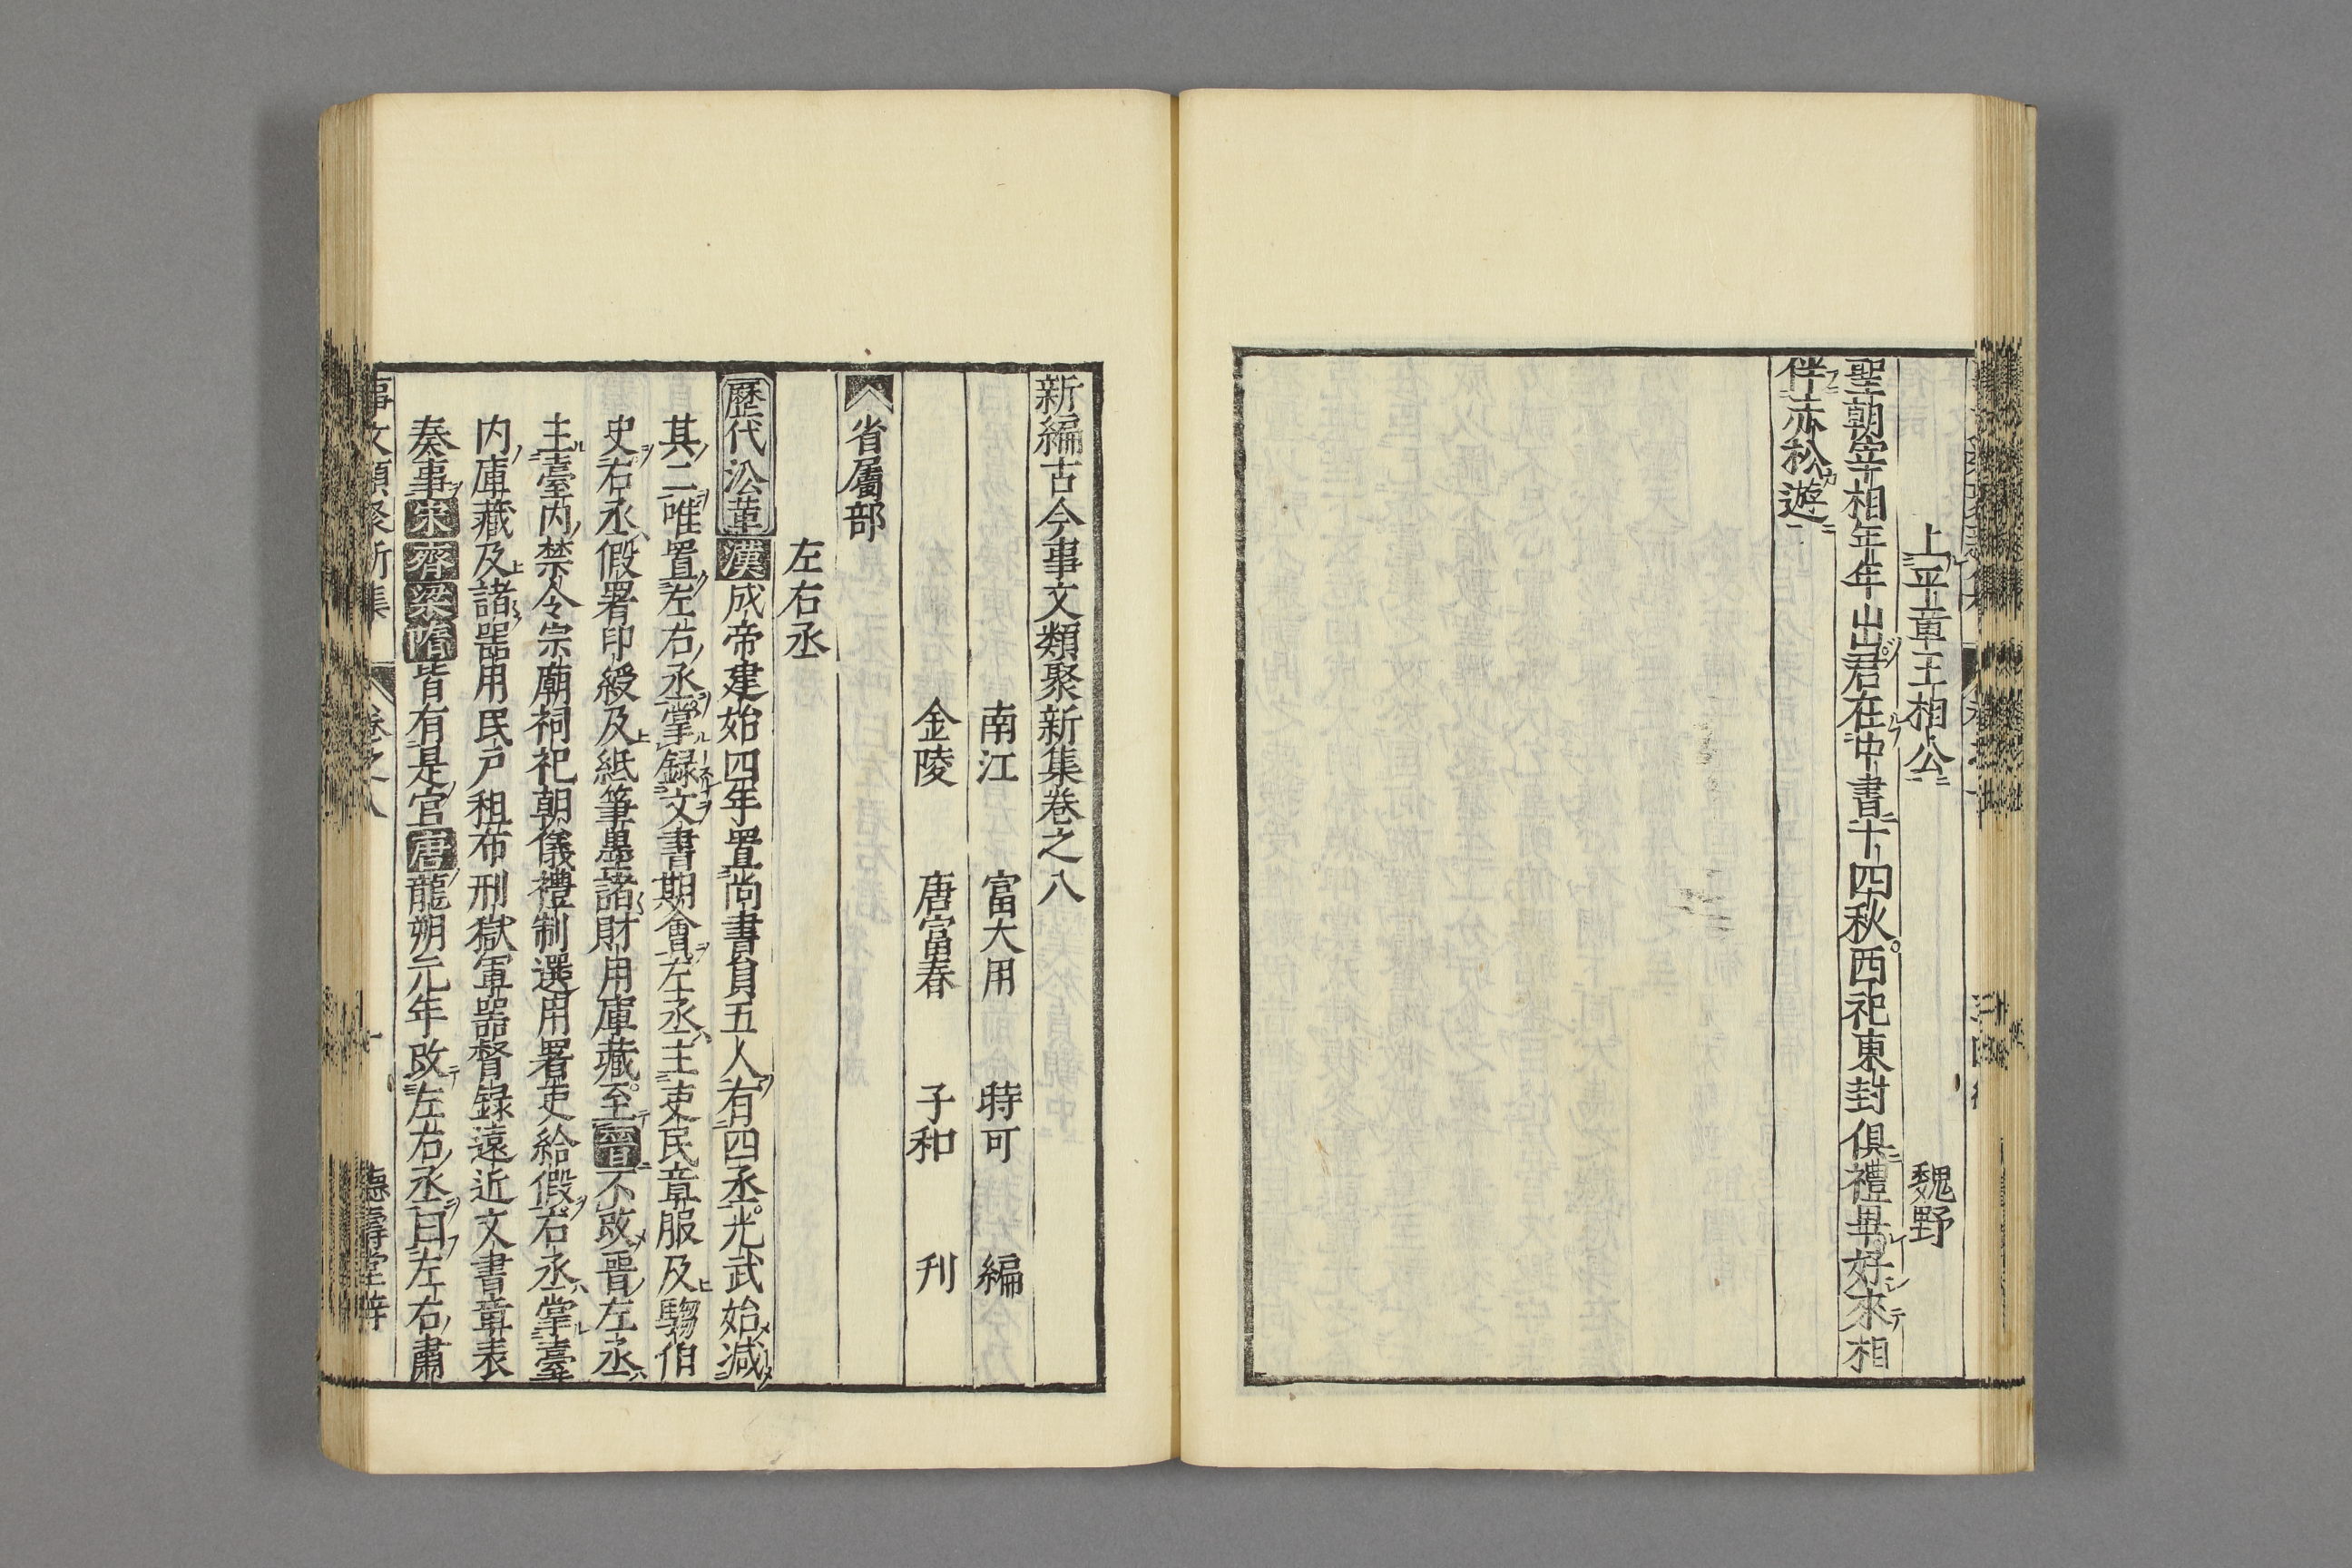 上平章王相公　魏野
聖朝宰相年年出君在中書十四秋西祀東封俱禮畢好來相
伴赤松遊
新編古今事文類聚新集卷之八
南江　富大用　時可　編
金陵　唐富春　子和　刊
省屬部
左右丞
歷代沿革漢成帝建始四年置尚書員五人有四丞光武始減
其二唯置左右丞掌録文書期會左丞主吏民章服及騶伯
史右丞假署印綬及紙筆墨諸財用庫藏至晉不改晉左丞
主臺内禁令宗廟祠祀朝儀禮制選用署吏給假右丞掌臺
内庫藏及諸器用民戸租布刑獄軍器督録遠近文書章表
奏事宋齊梁隋皆有是官唐龍朔元年改左右丞曰左右肅
事文類聚新集　卷之八　一　德壽堂梓